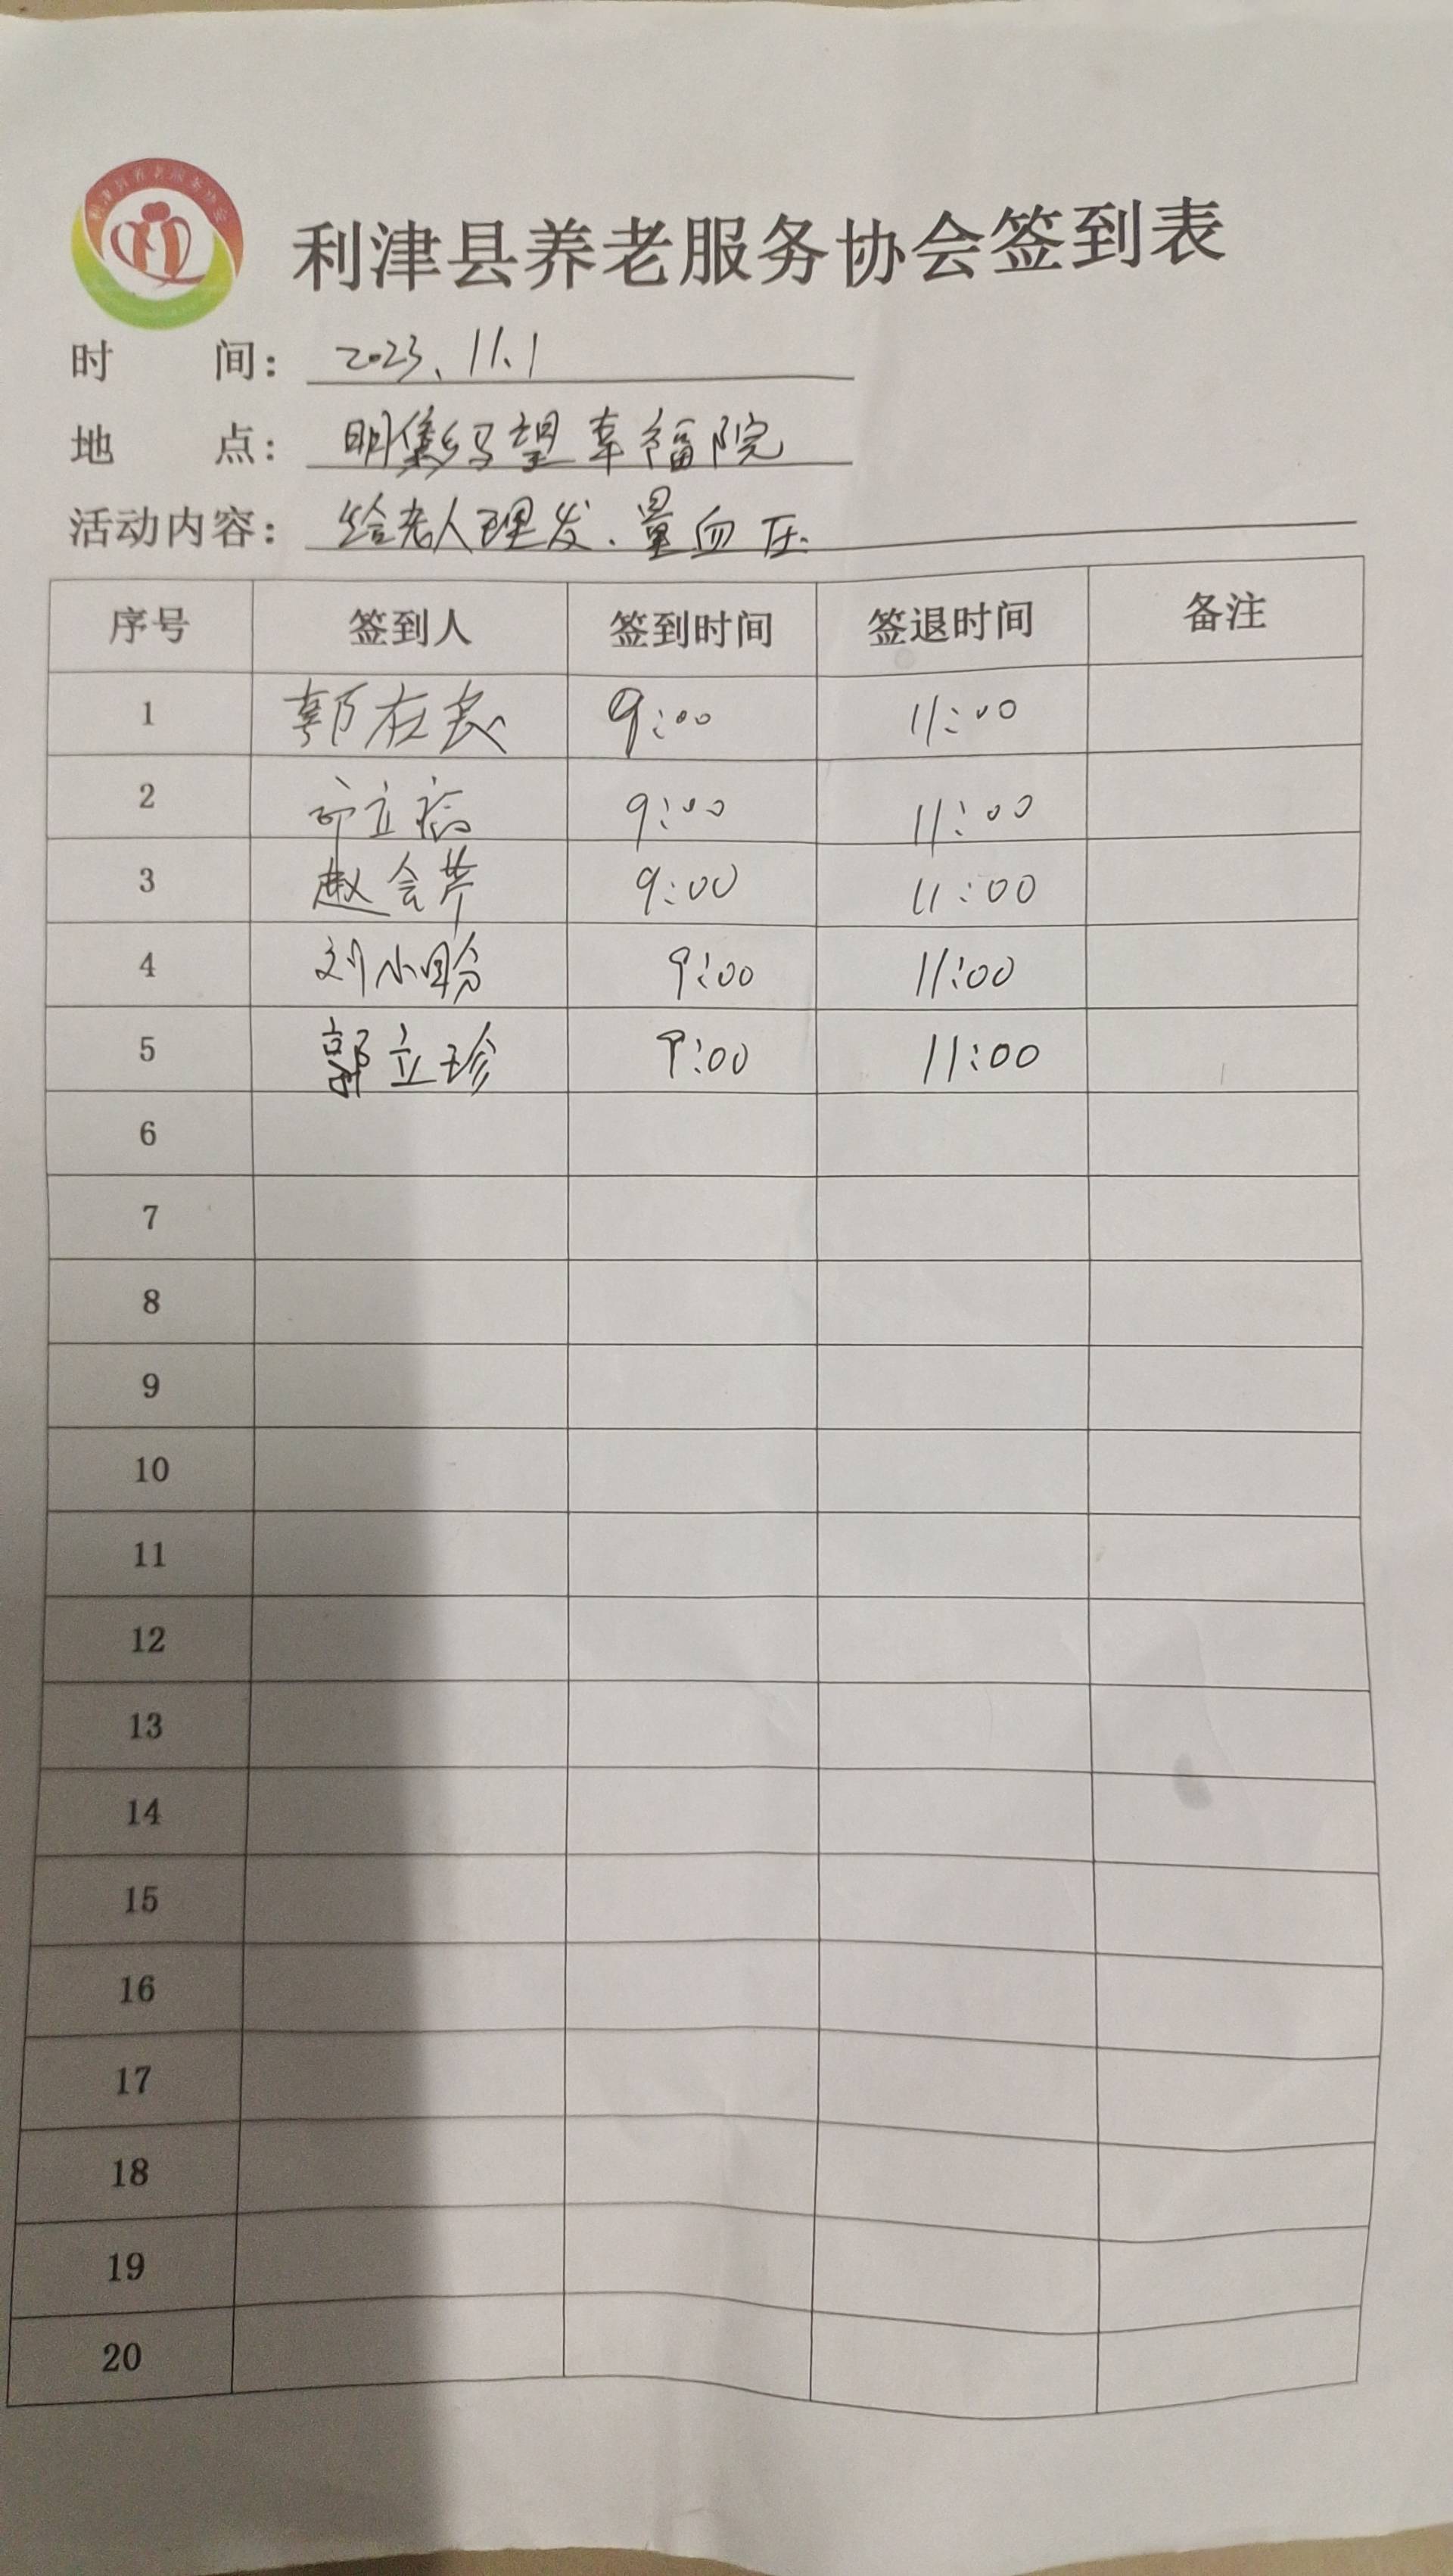 利津县养老服务协会
利津县养老服务协会签到表
时 间: 2023、11、1
地 点: 明集乡望幸福院
活动内容: 给老人理发、量血压
序号 签到人 签到时间 签退时间 备注
1 郭在民 9:00 11:00
2 立 9:00 11:00
3 赵会芹 9:00 11:00
4 刘小盼 9:00 11:00
5 郭立珍 9:00 11:00
6
7
8
9
10
11
12
13
14
15
16
17
18
19
20